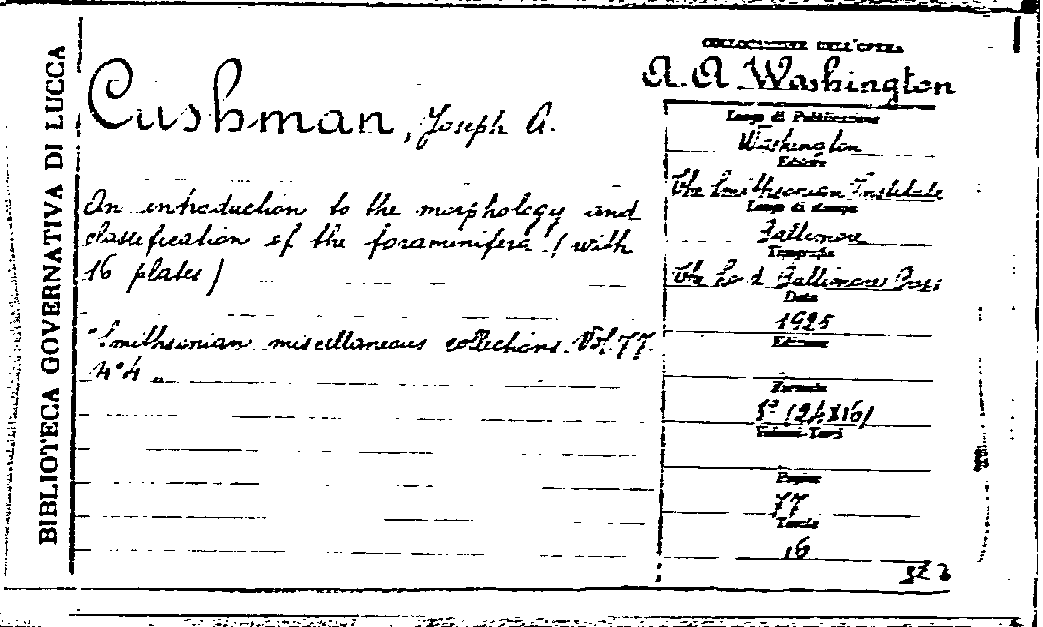 BIBLIOTECA GOVERNATIVA DI LUCCA
Cushman, Joseph A.
An introduction to the morphology and
classification of the foraminifera (with
16 plates)
"Smithsonian miscellaneous collections. Vol. 77
N° 4"
COLLOCAZIONE DELL'OPERA
A. A Washington
Luogo di Pubblicazione
Washington
Editore
The Smithsonian Institute
Luogo di stampa
Baltimore
Tipografia
The Lord Baltimore
Data
1925
Edizione
Formato
8° (24x16)
Volumi-Tomi
Pagine
77
Tavole
16